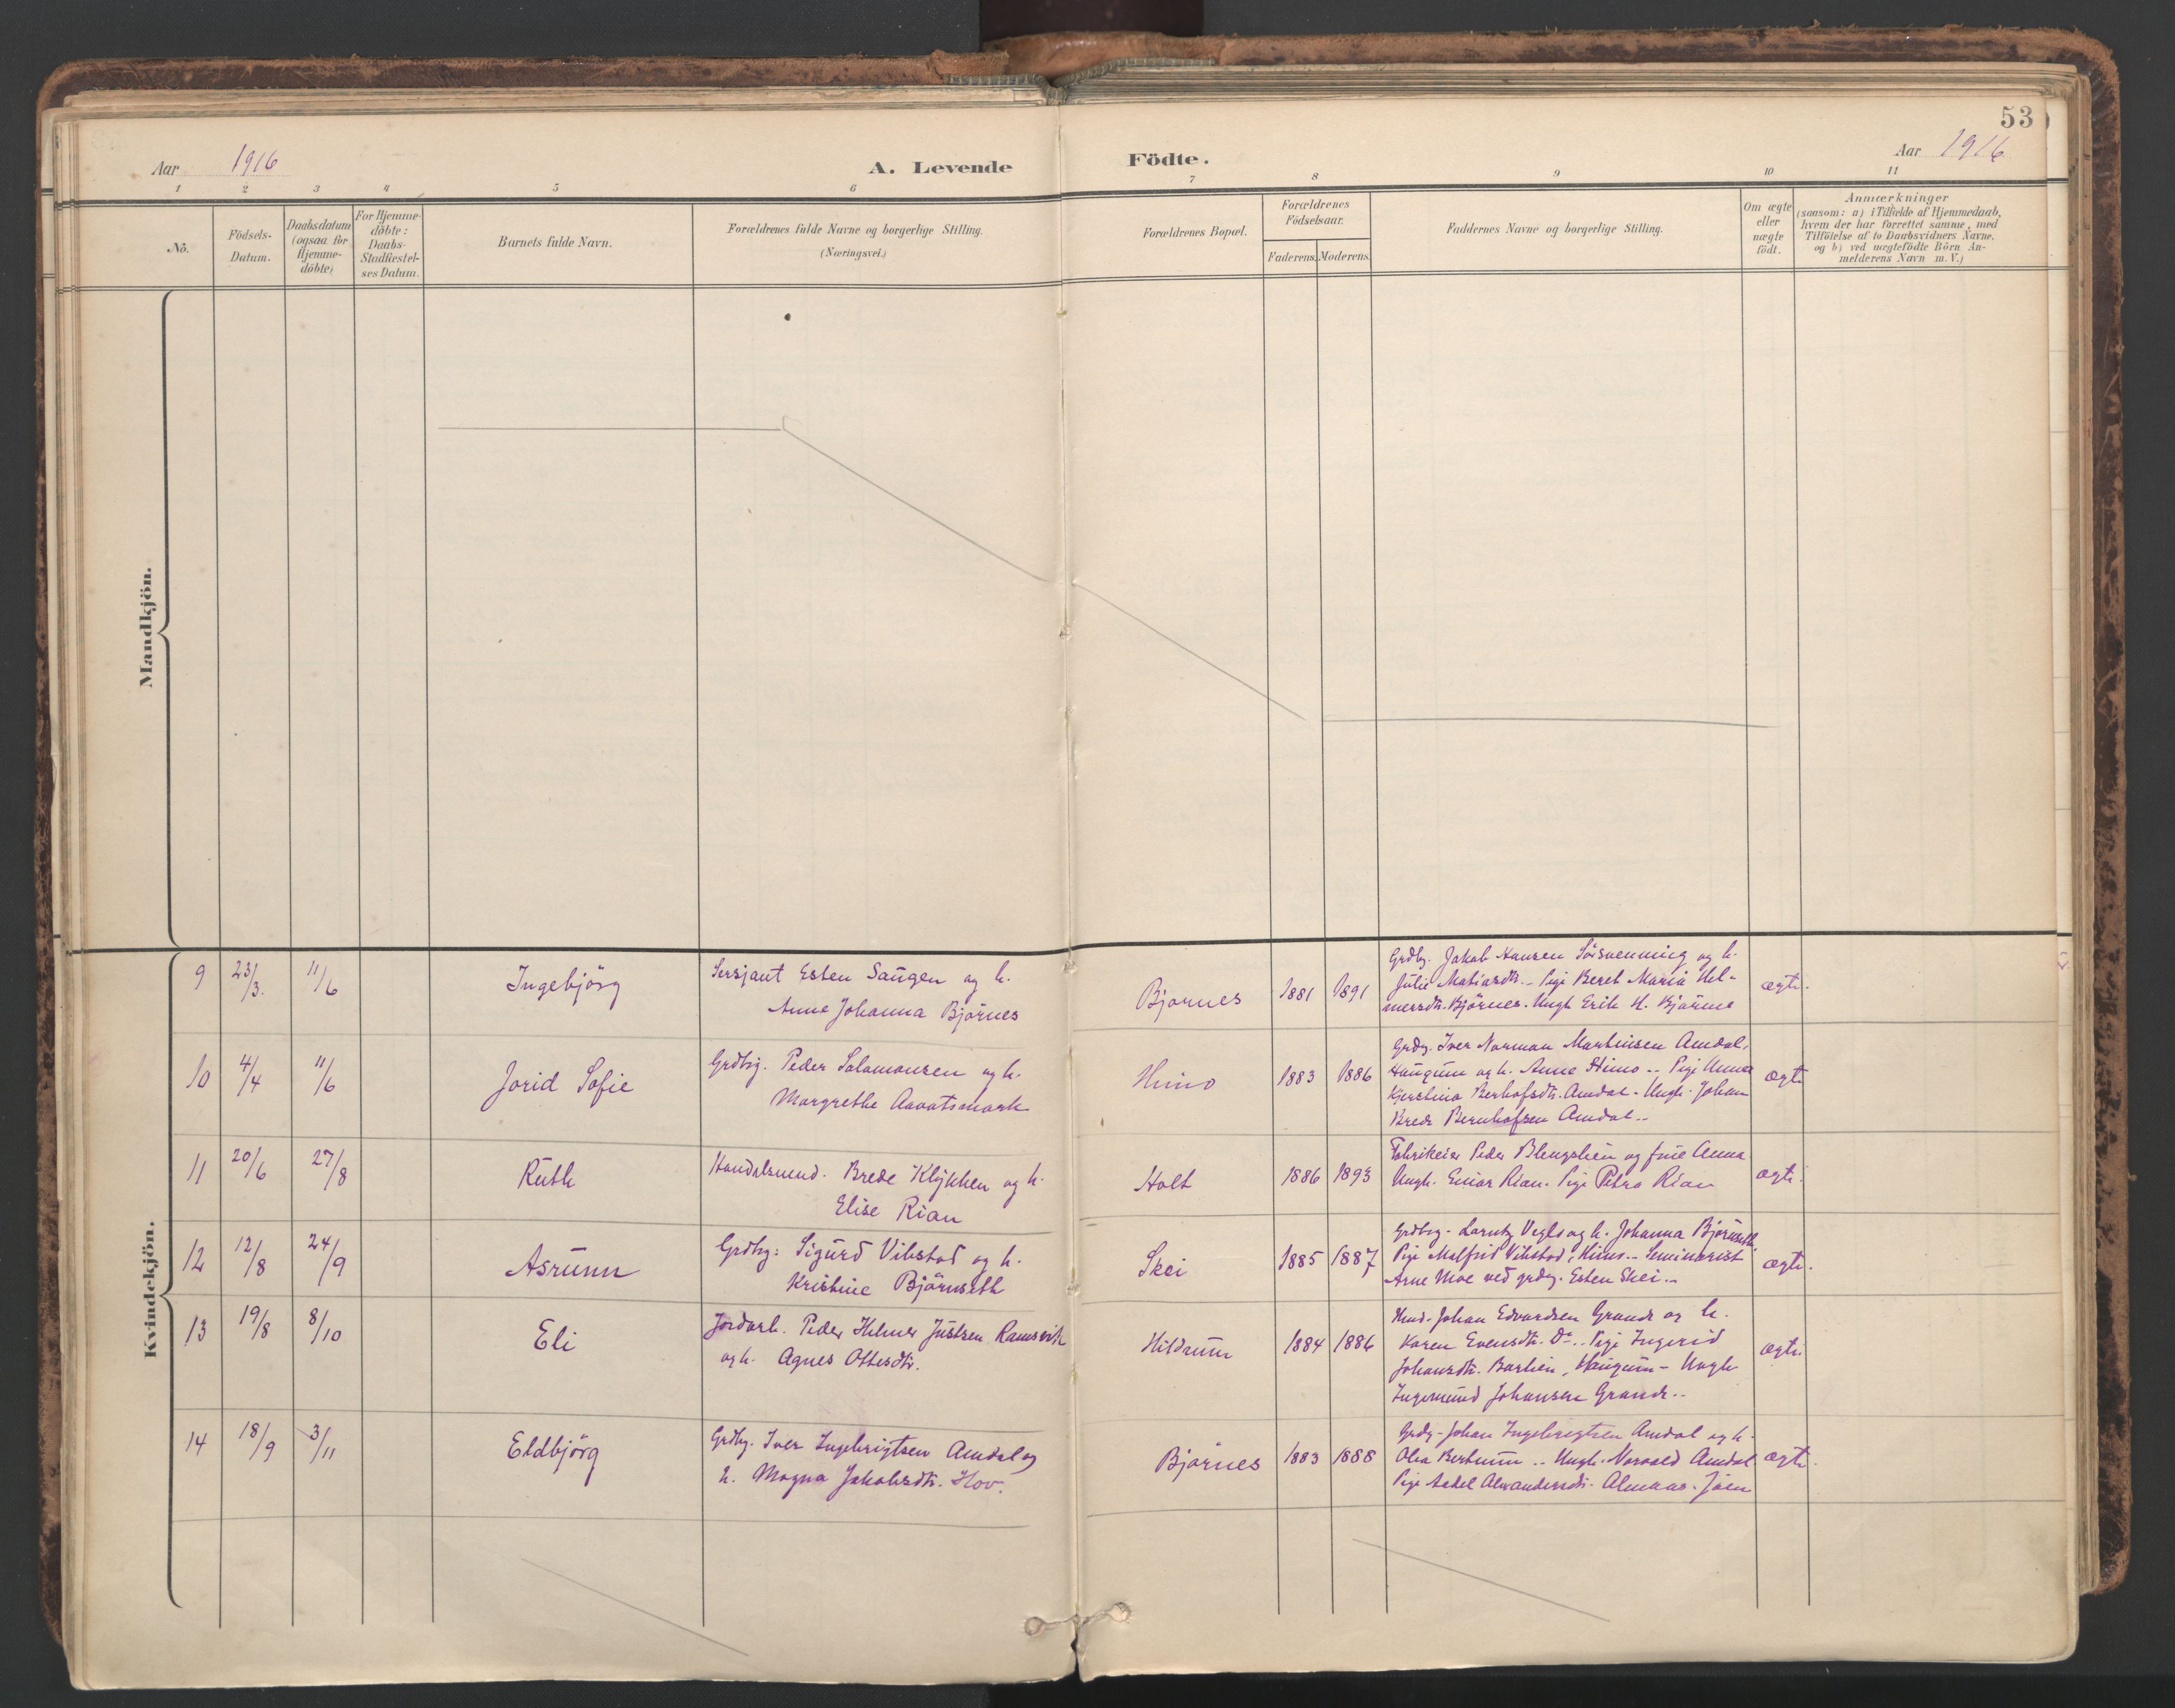 53
Aar 1916 A. Levende Födte. Aar 1916
1 2 3 4 5 6 7 8 9 10 11
No. Födsels-Datum. Daabsdatum (ogsaa for Hjemme-döbte) For Hjemme-döbte: Daabs-Stadfæstel-ses Datum. Barnets fulde Navn. Forældrenes fulde Navne og borgerlige Stilling. (Næringsvei.) Forældrenes Bopæl. Forældrenes Födselsaar. Faderens. Moderens. Faddernes Navne og borgerlige Stilling. Om ægte eller uægte födt. Anmærkninger (saasom: a) i Tilfælde af Hjemmedaab, hvem der har forrettet samme, med Tilföielse af to Daabsvidners Navne, og b) ved uægtefödte Börn An-melderens Navn m. V.)
Mandkjön.
Kvindekjön.
9 23/3. 11/6 Ingebjörg
Sersjant Esten Saugen og h.
Anne Johanna Björnes
Bjørnes 1881 1891
Grdbr. Jakob Hansen Sörsvenning og h.
Julie Matiasdtr. - Pige Beret Maria Hel-
mersdtr. Björnes. Ungk. Erik H. Bjørnes
ægte.
10 4/4 11/6 Jorid Sofie
Grdbrg. Peder Salamonsen og h.
Margrethe Aavatsmark
Himo 1883 1886
Grdbr. Iver Norman Martinsen Amdal,
Haugum og h. Anne Himo .. Pige Anna
Kjerstina Berhofsdtr. Amdal - Ungk. Johan
Brede Bernhofsen Amdal..
ægte
11 20/6 27/8 Ruth
Handelsmand. Brede Klykken og h.
Elise Rian
Holt 1886 1893
Fabrikeier Peder Blengslien og frue Anna
Ungk. Einar Rian. Pige Petra Rian
ægte.
12 12/8 24/9 Asrunn
Grdbrg: Sigurd Vibstad og h.
Kristine Björnseth
Skei 1885 1887
Grdbrg - Laruts Veglo og h. Johanna Björnseth.
Pige Malfrid Vibstad, Himo.. Seminarist
Arne Moe ved grdbr. Esten Skei..
ægte.
13 19/8 8/10 Eli
Jordarb. Peder Helmer Justsen Ramsvik
og h. Agnes Ottesdtr.
Hildrum 1884 1886
Hmd. Johan Edvardsen Grande og h.
Karen Evensdtr. Do .. Pige Ingerid
Johansdtr. Barlien, Haugum - Ungk
Ingemund Johansen Grande..
ægte.
14 18/9 3/11 Eldbjörg
Grdbr. Iver Ingebrigtsen Amdal og
h. Magna Jakobsdtr. Hov.
Bjørnes 1883 1888
Grdbr - Johan Ingebrigtsen Amdal og h.
Olea Berhunn .. Ungk. Norvald Amdal
Pige Aadel Alexandersdtr. Almaas. Jøen
ægte.